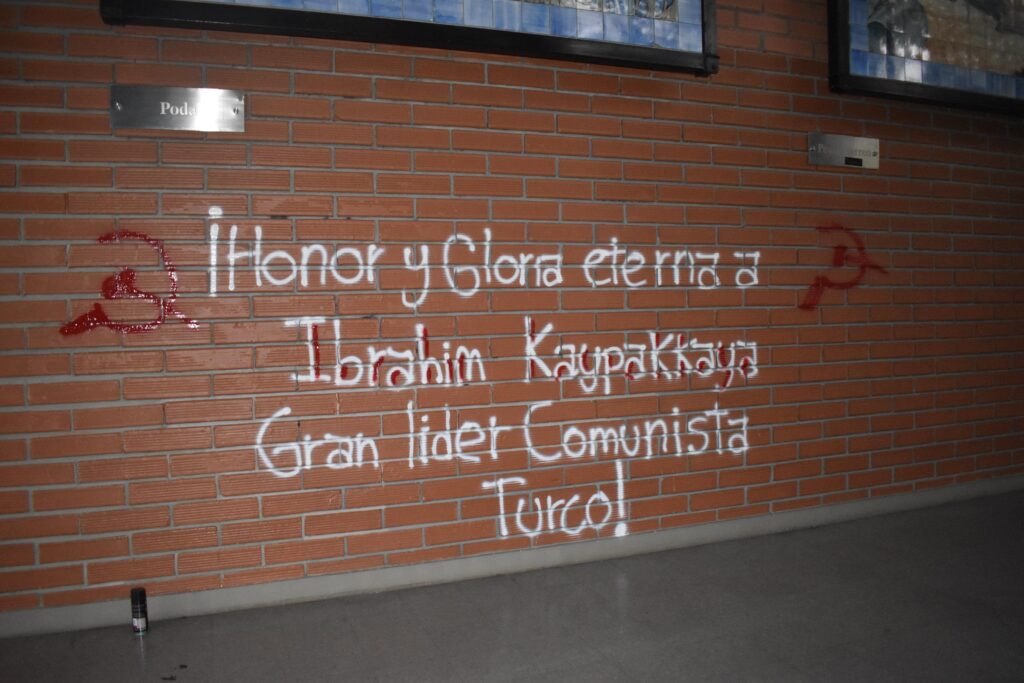 ¡Honor y Gloria eterna a
Ibrahim Kaypakkaya
Gran lider Comunista
Turco!